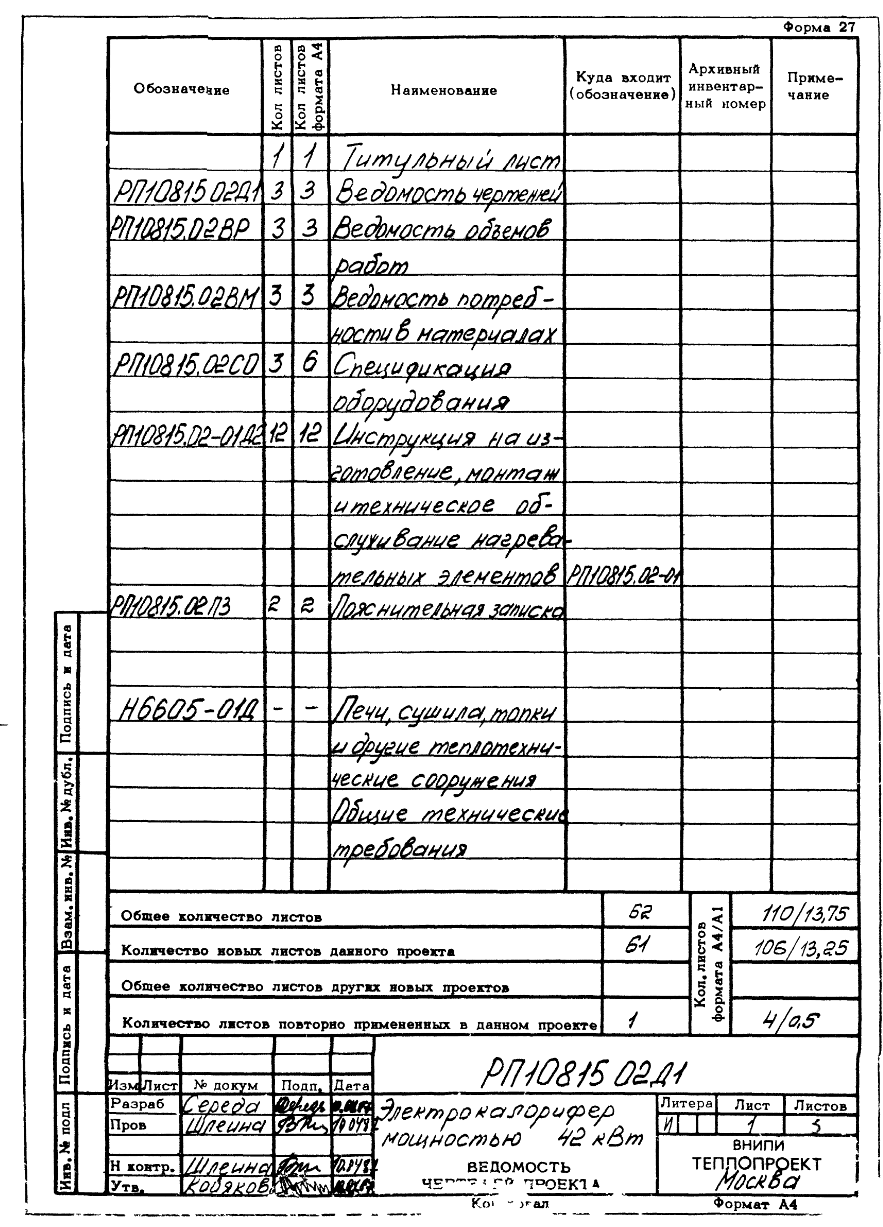 Форма 27
Обозначение
Кол листов
Кол листов формата А4
Наименование
Куда входит (обозначение)
Архивный инвентарный номер
Примечание
1 1 Титульный лист
РП10815 02Д1 3 3 Ведомость чертежей
РП10815.02ВР 3 3 Ведомость объемов
работ
РП10815.02ВМ 3 3 Ведомость потреб-
ности в материалах
РП10815.02СО 3 6 Спецификация
оборудования
РП10815.02-01Д2 12 12 Инструкция на из-
готовление, монтаж
и техническое об-
служивание нагрева-
тельных элементов РП10815.02-01
РП10815.02ПЗ 2 2 Пояснительная записка
Н6605-01Д - - Печи, сушила, топки
и другие теплотехни-
ческие сооружения
Общие технические
требования
Общее количество листов 62
Количество новых листов данного проекта 61
Общее количество листов других новых проектов
Количество листов повторно примененных в данном проекте 1
Кол. листов формата А4/А1
110/13,75
106/13,25
4/0,5
Подпись и дата
Инв. № дубл.
Взам. инв. №
Подпись и дата
Инв. № подл
РП10815 02Д1
Изм Лист № докум Подп. Дата
Разраб Середа
Пров Шлеина
Н контр. Шлеина
Утв. Кобяков
Электрокалорифер
мощностью 42 кВт
ВЕДОМОСТЬ
ПРОЕКТА
Литера Лист Листов
И 1 3
ВНИПИ
ТЕПЛОПРОЕКТ
Москва
Формат А4